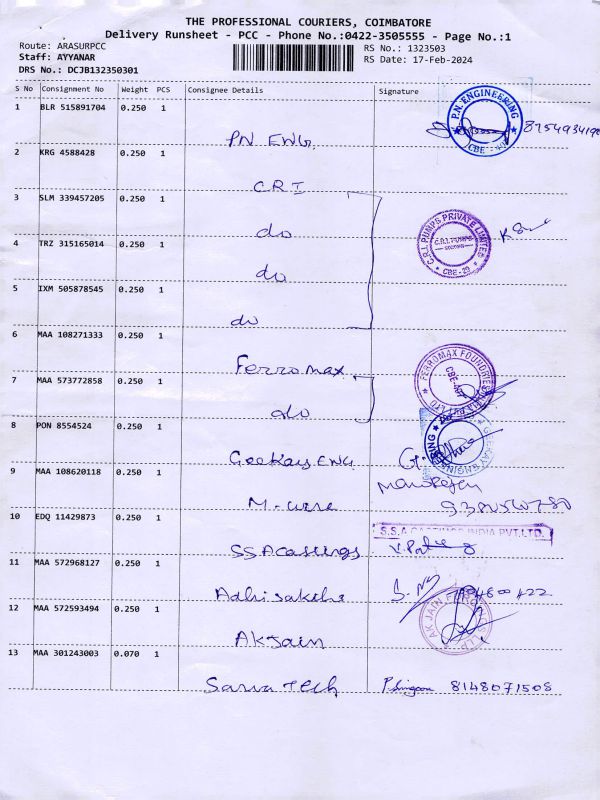 THE PROFESSIONAL COURIERS, COIMBATORE
Delivery Runsheet - PCC - Phone No.:0422-3505555 - Page No.:1
Route: ARASURPCC
RS No.: 1323503
Staff: AYYANAR
RS Date: 17-Feb-2024
DRS No.: DCJB132350301
S No Consignment No Weight PCS Consignee Details Signature
1 BLR 515891704 0.250 1
P.N. ENGINEERING
CBE
PN ENG.
2 KRG 4588428 0.250 1
C.R.I
3 SLM 339457205 0.250 1
do
C.R.I. PUMPS PRIVATE LIMITED
C.R.I. PUMPS
CBE - 29
4 TRZ 315165014 0.250 1
do
5 IXM 505878545 0.250 1
do
6 MAA 108271333 0.250 1
Ferromax
FERROMAX FOUNDRIES
7 MAA 573772858 0.250 1
do
8 PON 8554524 0.250 1
GeeKay ENG
9 MAA 108620118 0.250 1
10 EDQ 11429873 0.250 1
S.S.A CASTINGS INDIA PVT.LTD.
SSA castings
11 MAA 572968127 0.250 1
12 MAA 572593494 0.250 1
AK JAIN
AK Jain
13 MAA 301243003 0.070 1
Sarva Tech
8148071508